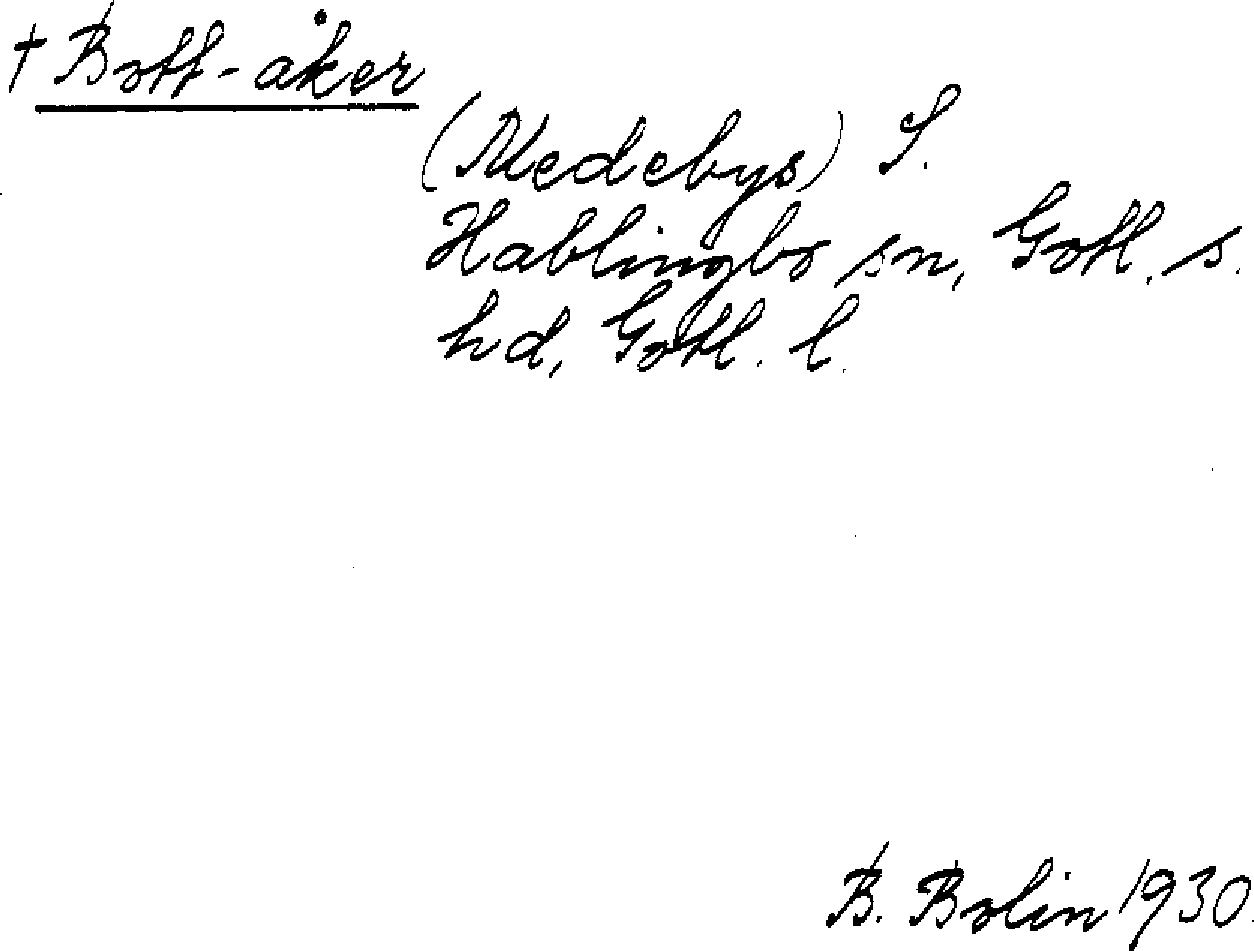 † Bott-åker
(Medebys) S.
Hablingbo sn, Gotl. s.
hd, Gotl. l.
B. Bolin 1930.